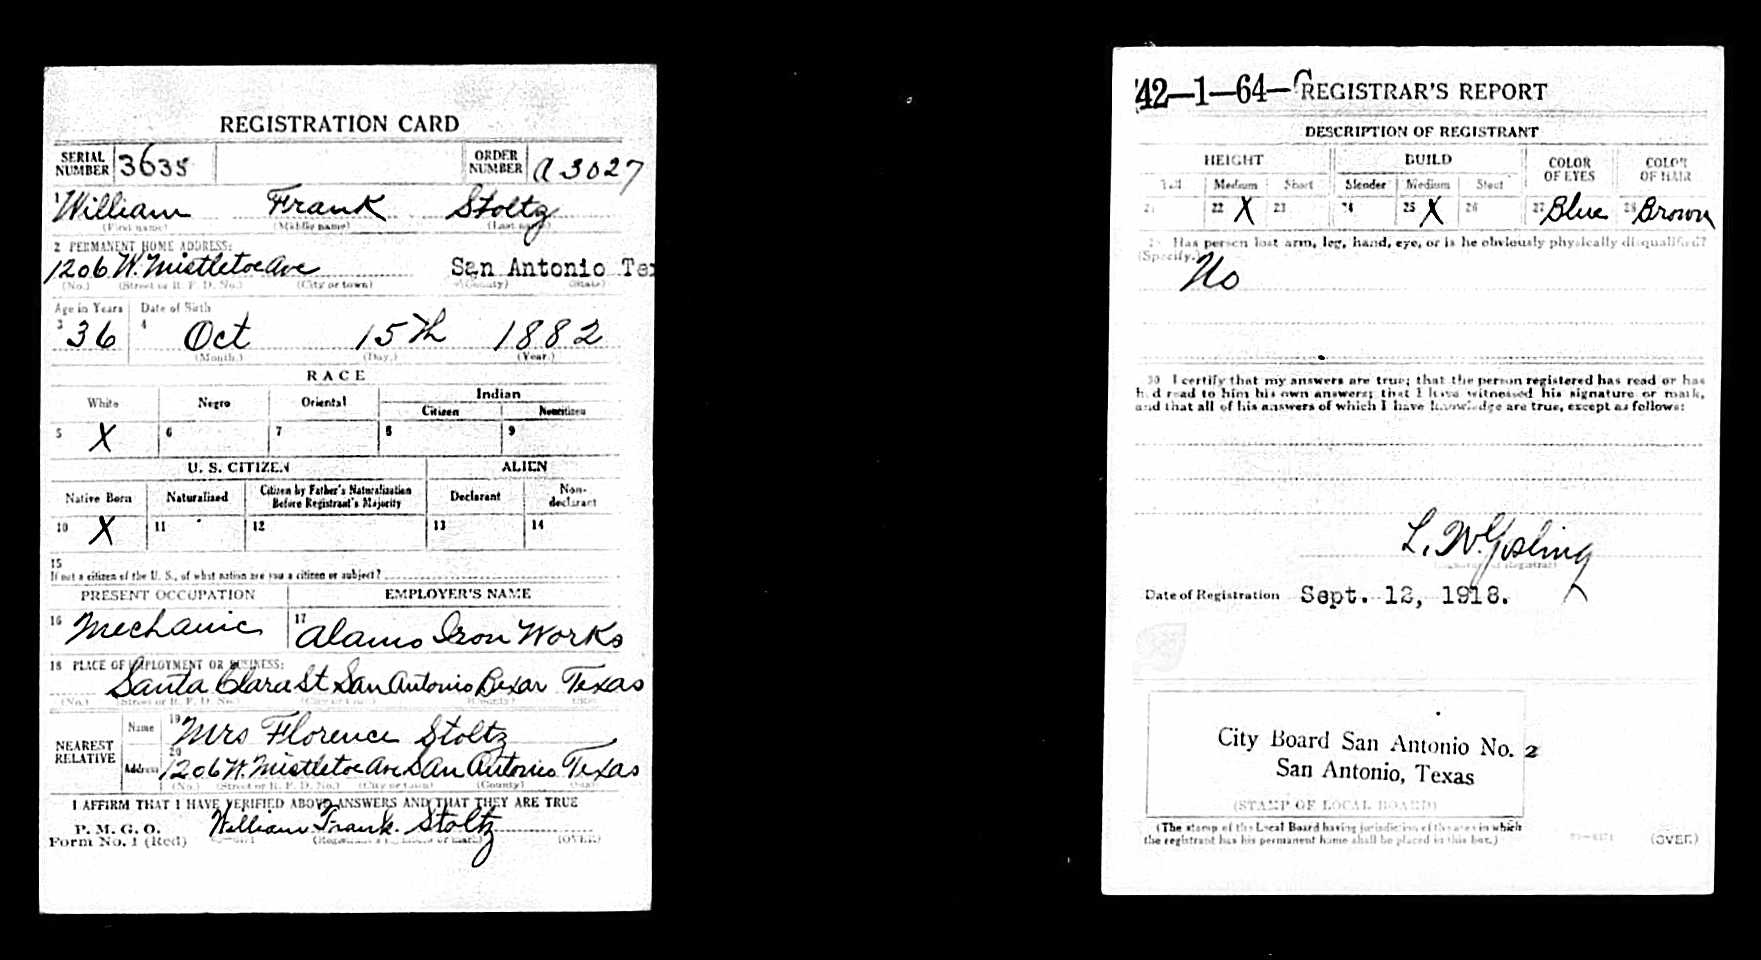 REGISTRATION CARD
SERIAL NUMBER 3635 ORDER NUMBER A 3027
1 William Frank Stoltz
(First name) (Middle name) (Last name)
2 PERMANENT HOME ADDRESS:
1206 W. Mistletoe Ave San Antonio Tex
(No.) (Street or R. F. D. No.) (City or town) (County) (State)
Age in Years Date of Birth
3 36 4 Oct 15th 1882
(Month.) (Day.) (Year.)
RACE
White Negro Oriental Indian
Citizen Noncitizen
5 X 6 7 8 9
U. S. CITIZEN ALIEN
Native Born Naturalized Citizen by Father's Naturalization Before Registrant's Majority Declarant Non-declarant
10 X 11 12 13 14
15
If not a citizen of the U. S., of what nation are you a citizen or subject?
PRESENT OCCUPATION EMPLOYER'S NAME
16 Mechanic 17 Alamo Iron Works
18 PLACE OF EMPLOYMENT OR BUSINESS:
Santa Clara St San Antonio Bexar Texas
(No.) (Street or R. F. D. No.) (City or town) (County) (State)
NEAREST RELATIVE
Name 19 Mrs Florence Stoltz
Address 20 1206 W. Mistletoe Ave San Antonio Texas
(No.) (Street or R. F. D. No.) (City or town) (County) (State)
I AFFIRM THAT I HAVE VERIFIED ABOVE ANSWERS AND THAT THEY ARE TRUE
P. M. G. O.
Form No. 1 (Red) William Frank. Stoltz
(Registrant's signature or mark) (OVER)
42-1-64-C REGISTRAR'S REPORT
DESCRIPTION OF REGISTRANT
HEIGHT BUILD COLOR OF EYES COLOR OF HAIR
Tall Medium Short Slender Medium Stout
21 22 X 23 24 25 X 26 27 Blue 28 Brown
29 Has person lost arm, leg, hand, eye, or is he obviously physically disqualified?
(Specify.)
No
30 I certify that my answers are true; that the person registered has read or has
had read to him his own answers; that I have witnessed his signature or mark,
and that all of his answers of which I have knowledge are true, except as follows:
L. W. Gosling
(Signature of Registrar)
Date of Registration Sept. 12, 1918.
City Board San Antonio No. 2
San Antonio, Texas
(STAMP OF LOCAL BOARD)
(The stamp of the Local Board having jurisdiction of the area in which
the registrant has his permanent home shall be placed in this box.)
(OVER)